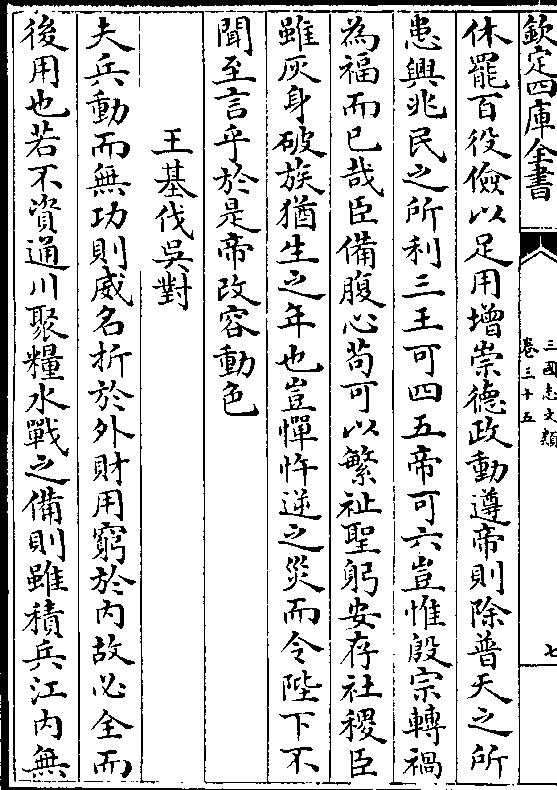 欽定四庫全書
三國志文類
卷三十五
七
休罷百役儉以足用增崇德政動遵帝則除普天之所
患興兆民之所利三王可四五帝可六豈惟殷宗轉禍
為福而已哉臣備腹心苟可以繁祉聖躬安存社稷臣
雖灰身破族猶生之年也豈憚忤逆之災而令陛下不
聞至言乎於是帝改容動色
王基伐吳對
夫兵動而無功則威名折於外財用窮於内故必全而
後用也若不資通川聚糧水戰之備則雖積兵江内無